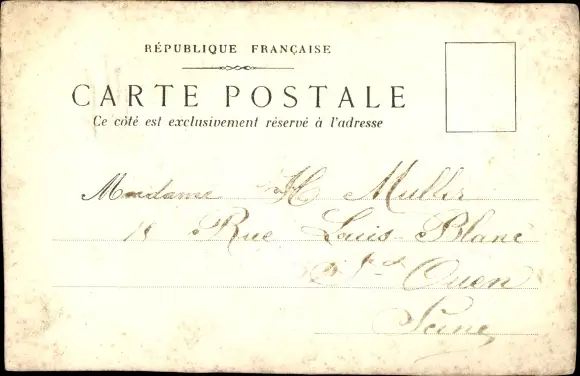 RÉPUBLIQUE FRANÇAISE
CARTE POSTALE
Ce côté est exclusivement réservé à l'adresse
Madame H Muller
18 Rue Louis-Blanc
St Ouen
Seine